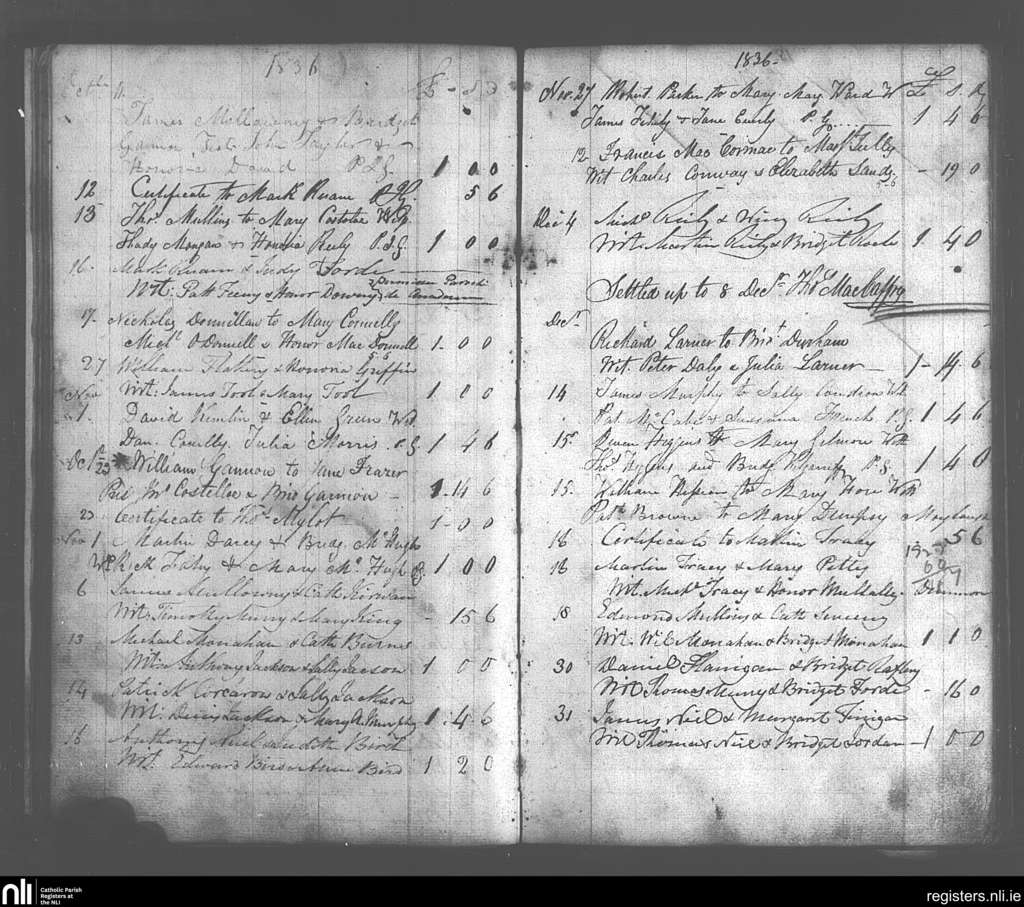 1836
£ - S D
James Mullowney & Bridget
Gannon Test John Taylor & -
Honor David P.S.G. 1 0 0
12 Certificate to Mark Ruane P.G 5 6
13 Thos. Mullins to Mary Costoloe Wit.
Thady Mongan & Honoria Reily P.S.G. 1 0 0
16. Mark Ruane & Judy Forde
Wit: Patt Feeny & Honor Downy Parish
17. Nicholas Donnillan to Mary Connelly
Michl. O Donnell & Honor Mac Donnell 1 - 0 0
27 William Flahiny & Honoria Griffin
Nov Wit: James Tool & Mary Tool 1 0 0
David & Ellen Green Wit
Dan. Conelly Julia Morris P.G 1 4 6
Oct 23 William Gannon to Jane Frazer
Jno. Costelloe & Brid Gannon - 1 - 14 6
23 Certificate to Thos. Mylot 1 - 0 0
Nov 1 Martin Darcy & Bridg. Mc Hugh
Rick Fahy & Mary Mc. Hugh 1 0 0
6 James Mullowny & Cath Kirwan
Wit: Timothy Murry & Mary King - 15 6
13 Michael Monahan & Cath Burnes
Wit: Anthony Jackson & Sally Jacson 1 0 0
14 Patrick Corcaron & Sally Jackson
Wit: Denis Jackson & Mary A. Murphy 1 - 4 6
Anthony Niel Judith Bird
Wit. Edward Bird Bird 1 2 0
1836 -
Nov. 27 Robert Parker to Mary Ward W £ S. D
James & Jane P. G. 1 4 6
12 Francis Mac Cormac to Mary Tully
Wit Charles Conway & Elizabeth Sands - 19 0
Decr 4 Michl Reily & Reily
Wit: Martin Reily & Bridget Roche 1. 4 0
Settled up to 8 Decr. Thos MacCaffry
Decr.
Richard Larner to Bridt Durham
Wit. Peter Daly & Julia Larner - 1 - 14 6
14 James Murphy to Sally Wit
Pat Mc Cabe & French P.G. 1 4 6
15 Owen Higgins to Mary Gilmore Wit
Thos Higgins and Bridg P.G. 1 4 0
15. William to Mary Wit
Patk Browne to Mary Dempsy
16 Certificate to Martin Tracy 5 6
18 Martin Tracy & Mary Petty
Wit. Michl Tracy & Honor Mullally.
18 Edmond Mullins & Cath
Wit. Wm Monahan & Bridget Monahan 1 1 0
30 Daniel Flanigan & Bridget
Wit Thomas Murry & Bridget Forde - 16 0
31 James Niel & Margaret Finigan
Wit Thomas Niel & Bridget Jordan - 1 0 0
nli
Catholic Parish
Registers at
the NLI
registers.nli.ie